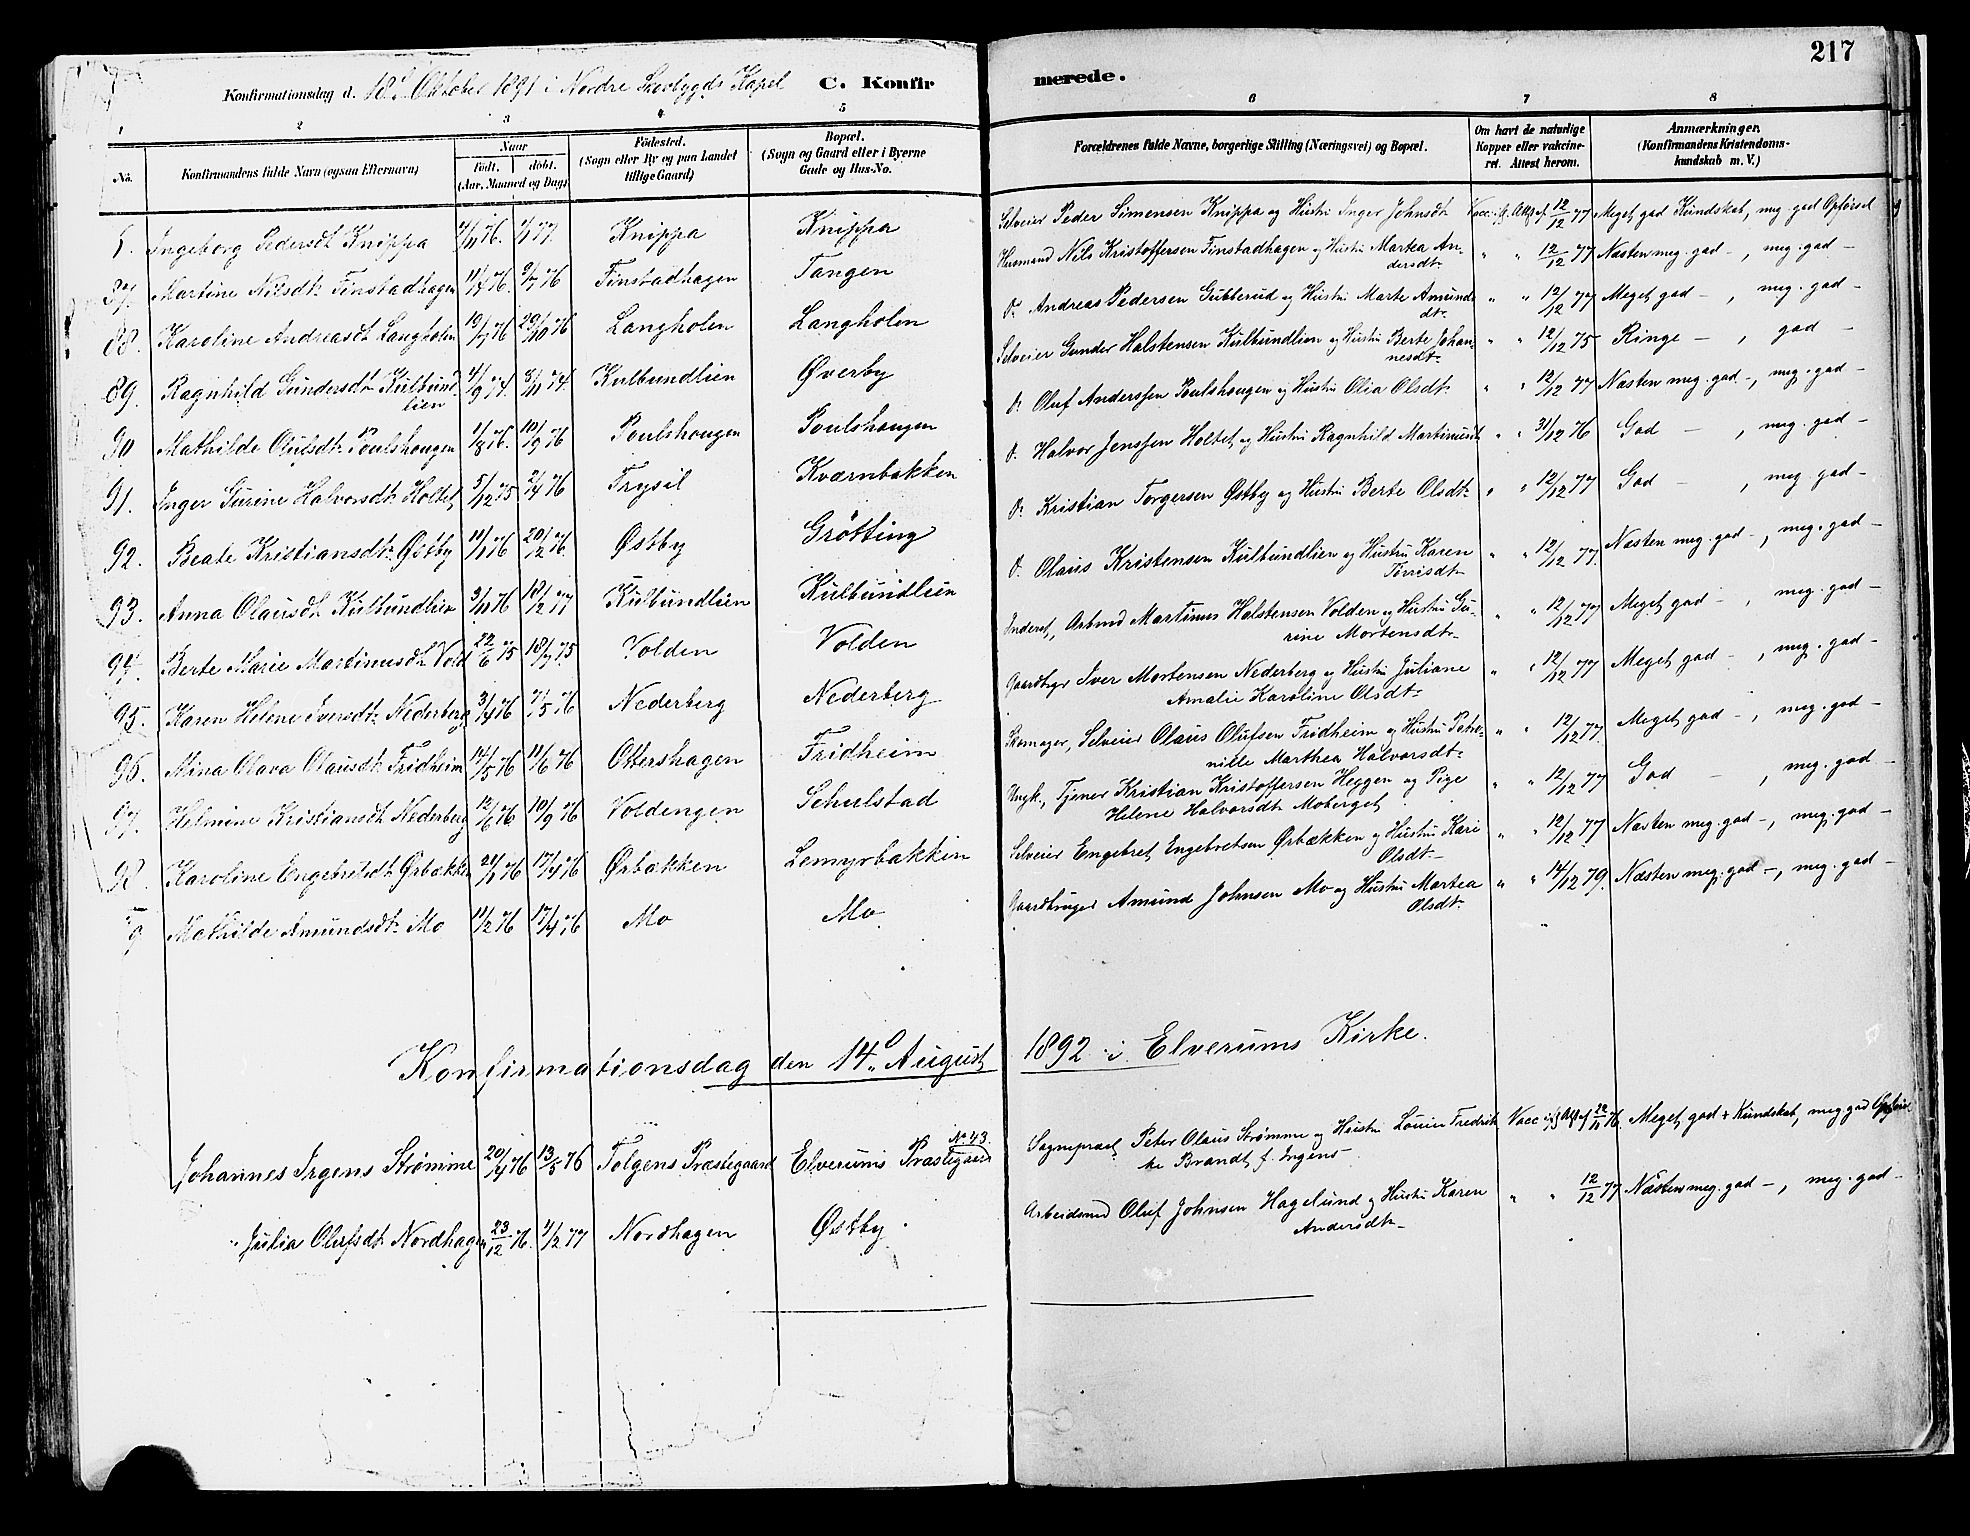 217
Konfirmationsdag d. 18d. Oktober 1891 i Nordre Skovbygds Kapel C. Konfirmerede.
1 2 3 4 5 6 7 8
No. Konfirmandens fulde Navn (ogsaa Efternavn) Naar Födt. döbt. (Aar, Maaned og Dag) Födested. (Sogn eller By og paa Landet tillige Gaard) Bopæl. (Sogn og Gaard eller i Byerne Gade og Hus-No. Forældrenes fulde Navne, borgerlige Stilling (Næringsvei) og Bopæl. Om havt de naturlige Kopper eller vakcineret. Attest herom. Anmærkninger. (Konfirmandens Kristendomskundskab m. V.)
Ingeborg Pedersdt Knippa 4/11 76. 1/1 77. Knippa Knippa Selveier Peder Simensen Knippa og Hustru Inger Johnsdt Vacc. if. Att. af 12/12 77 Meget god Kundskab, meg. god Opførsel
87. Martine Nilsdt. Finstadhagen 11/4 76. 9/7 76 Finstadhagen Tangen Husmand Nils Kristoffersen Finstadhagen og Hustru Martea An-
dersdt. " " 12/12 77 Næsten meg. god –, meg. god –
88. Karoline Andreasdt Langholen 19/7 76 29/10 76 Langholen Langholen D. Andreas Pedersen Gubberud og Hustru Marte Amunds
dt. " " 12/12 77 Meget god –, meg. god –
89. Ragnhild Gundersdt. Kulbund-
lien 4/9 74. 8/11 74. Kulbundlien Øverby Selveier Gunder Halstensen Kulbundlien og Hustru Berte Johan-
nesdt. " " 12/12 75 Ringe –, god –
90 Mathilde Olufsdt. Poulshougen 11/8 76. 10/9 76 Poulshougen Poulshougen D. Oluf Anderssen Poulshougen og Hustru Olia Olsdt. " " 12/12 77 Næsten meg. god –, meg. god –
91. Inger Turine Halvorsdt. Holtet 5/12 75 2/4 76 Trysil Kværnbakken D. Halvor Jenssen Holtet og Hustru Ragnhild Martinusdt " " 31/12 76 God –, meg. god –
92. Beate Kristiansdt. Østby 11/11 76 20/12 76. Østby Grøtting D. Kristian Torgersen Østby og Hustru Berte Olsdt. " " 12/12 77 God –, meg. god –
93. Anna Olausdt. Kulbundlien 3/11 76 18/2 77 Kulbundlien Kulbundlien D. Olaus Kristensen Kulbundlien og Hustru Karen
" " 12/12 77. Næsten meg. god –, meg. god –
94. Berte Marie Martinusdt. Vold 22/6 75 18/7 75 Volden Volden Inderst, Arbmd Martinus Halstensen Volden og Hustru Gu-
rine Mortensdt. " " 12/12 77 Meget god –, meg. god –
95. Karen Helene Iversdt. Nederberg 3/4 76 7/5 76 Nederberg Nederberg Gaardbrger Iver Mortensen Nederberg og Hustru Juliane
Amalie Karoline Olsdt. " " 12/12 77 Meget god –, meg. god –
96. Mina Olava Olausdt. Fridheim 14/5 76 11/6 76 Ottershagen Fridheim Skomager, Selveier Olaus Olufsen Fridheim og Hustru Petro-
nille Marthea Halvorsdt. " " 12/12 77. Meget god –, meg. god –
97. Helmine Kristiansdt. Nederberg 12/6 76. 10/9 76 Voldengen Schulstad Ungk., Tjener Kristian Kristoffersen Heggen og Pige
Helene Halvorsdt. Moberget " " 12/12 77 God –, meg. god –
98. Karoline Engebretsdt. Ørbækken 21/1 76 17/4 76 Ørbækken Lemyrbakken Selveier Engebret Engebretsen Ørbækken og Hustru Kari
Olsdt. " " 12/12 77 Næsten meg. god –, meg. god –
9 Mathilde Amundsdt. Mo 11/2 76 17/4 76 Mo Mo Gaardbruger Amund Johnsen Mo og Hustru Martea
Olsdt. " " 14/12 79. Næsten meg. god –, meg. god –
Konfirmationsdag den 14d. August 1892 i Elverums Kirke.
Johannes Irgens Strømme 20/4 76 13/5 76 Tolgens Præstegaard Elverums Præstegaard No 43. Sognepræst Peter Olaus Strømme og Hustru Louise Fredrik-
ke Brandt f. Irgens Vacc. if. Att. af 22/11 76. Meget god + Kundskab, meg. god Opførsel
" Julia Olufsdt. Nordhagen 23/12 76. 4/2 77 Nordhagen Østby. Arbeidsmd Oluf Johnsen Hagelund og Hustru Karen
Andersdt. " " 12/12 77 Næsten meg. god –, meg. god –